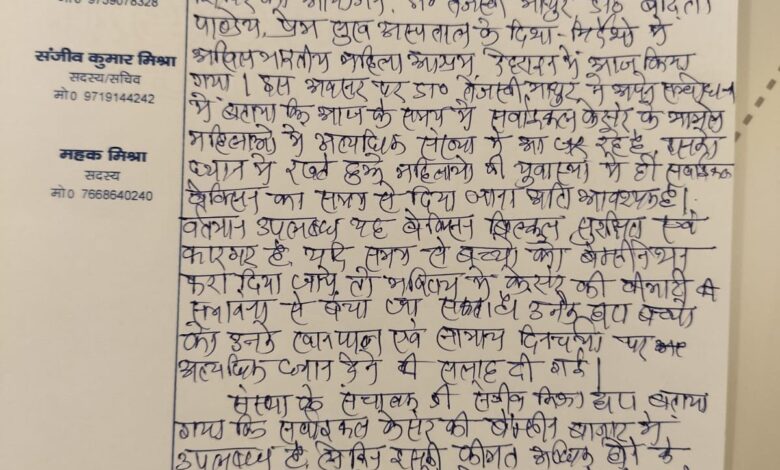 मो0 9759078328
संजीव कुमार मिश्रा
सदस्य/सचिव
मो0 9719144242
महक मिश्रा
सदस्य
मो0 7668640240
पाण्डेय, प्रेम सुख अस्पताल के दिशा-निर्देशो में
अखिल भारतीय महिला आश्रम देहरादून में आज किया
गया। इस अवसर पर डा० तेजस्वी माथुर ने अपने सम्बोधन
में बताया कि आज के समय में सर्वाइकल कैंसर के मामले
महिलाओ मे अत्यधिक संख्या में आ रहे है, इसको
ध्यान मे रखते हुये महिलाओ को युवावस्था मे ही सर्वाइकल
वैक्सिन का समय से दिया जाना अति आवश्यक है।
वर्तमान उपलब्ध यह वैक्सिन बिल्कुल सुरक्षित एवं
कारगर है, यदि समय से बच्चो को वैक्सीनेशन
करा दिया जाये तो भविष्य मे कैंसर की बीमारी की
सम्भावना से बचा जा सकता है उनके द्वारा बच्चो
को उनके खानपान एवं सामान्य दिनचर्या पर
अत्यधिक ध्यान देने की सलाह दी गई।
संस्था के संचालक श्री संजीव मिश्रा द्वारा बताया
गया कि सर्वाइकल कैंसर की वैक्सीन बाजार में
उपलब्ध है, लेकिन इसकी कीमत अधिक होने के